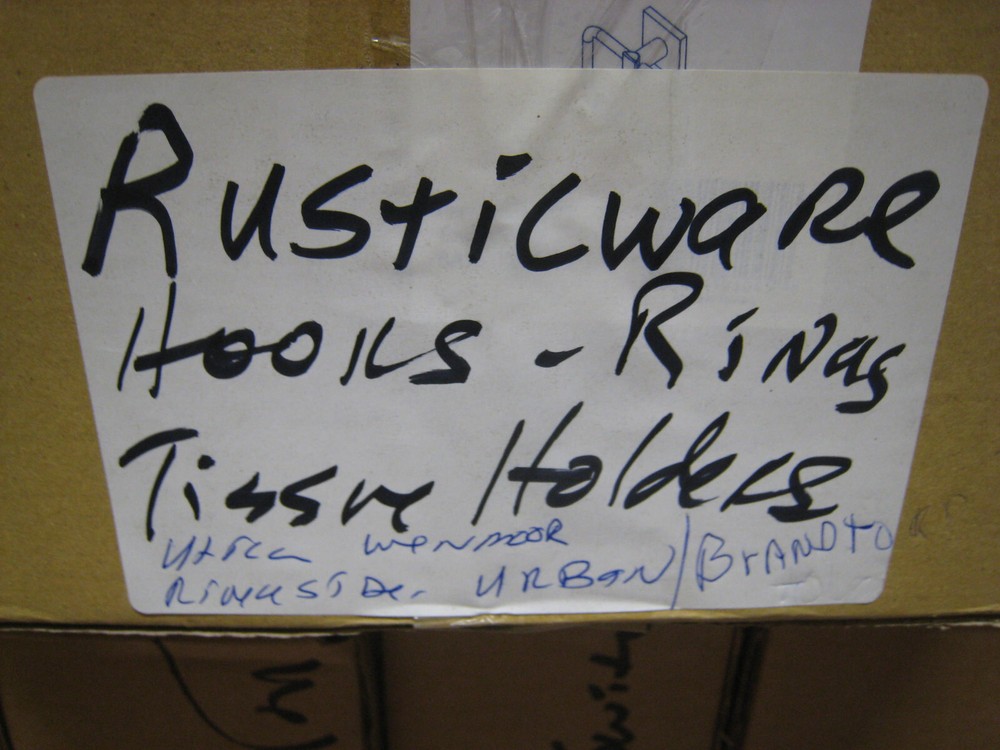 Rusticware
Hooks - Rings
Tissue Holders
Utica Wendor
Riverside. URBAN/BrANDto